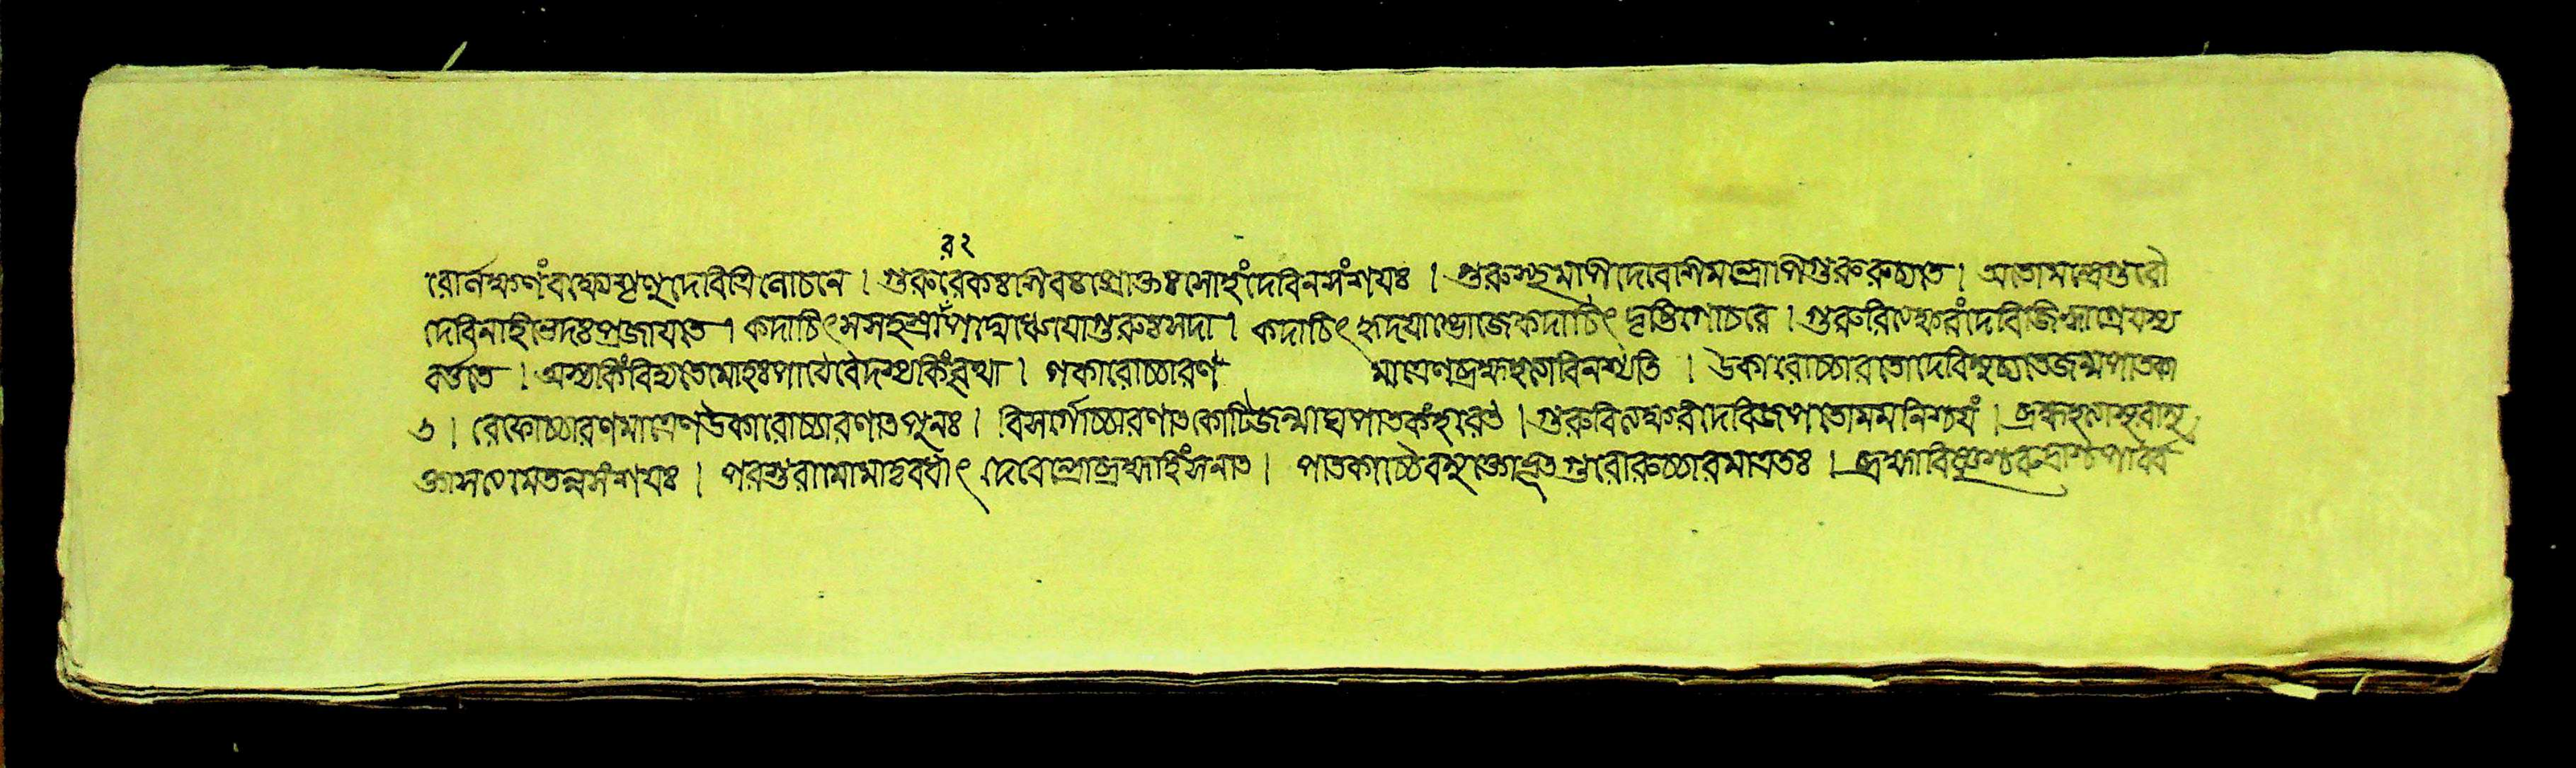 র২
রোর্লক্ষণংবক্ষ্যেশৃণুদেবিত্রিলোচনে । গুরুরেকঃশিবঃপ্রোক্তঃসোহংদেবিনসংশয়ঃ । গুরুস্ত্বমপিদেবেশিমন্ত্রোপিগুরুরুচ্যতে । অতোমন্ত্রেগুরৌ
দেবিনহিভেদঃপ্রজায়তে । কদাচিৎসসহস্রারেপদ্মেধ্যেয়োগুরুঃসদা । কদাচিৎহৃদয়াম্ভোজেকদাচিৎদৃষ্টিগোচরে । গুরুরিত্যক্ষরংদেবিজিহ্বাগ্রেযস্য
বর্ত্ততে । অস্যকিংবিদ্যতেমোহঃপাঠৈর্বেদস্যকিংবৃথা । গকারোচ্চারণ মাত্রেণব্রহ্মহত্যাবিনশ্যতি । উকারোচ্চারতোদেবিমুচ্যতেজন্মপাতকা
ৎ । রেফোচ্চারণমাত্রেণউকারোচ্চারণাৎপুনঃ । বিসর্গোচ্চারণাৎকোটিজন্মাঘপাতকংহরেৎ । গুরুবিত্যক্ষরংদেবিজপতোমমনিশ্চয়ং । ব্রহ্মহত্যাসুরাসু
ক্তাসত্যমেতন্নসংশয়ঃ । পরশুরামোমাতৃবধাৎ দেবেন্দ্রোব্রহ্মহিংসনাৎ । পাতকাচ্চৈবমুক্তোভূৎগুরোরুচ্চারমাত্রতঃ । ব্রহ্মাবিষ্ণুশ্চরুদ্রশ্চপার্ব্ব